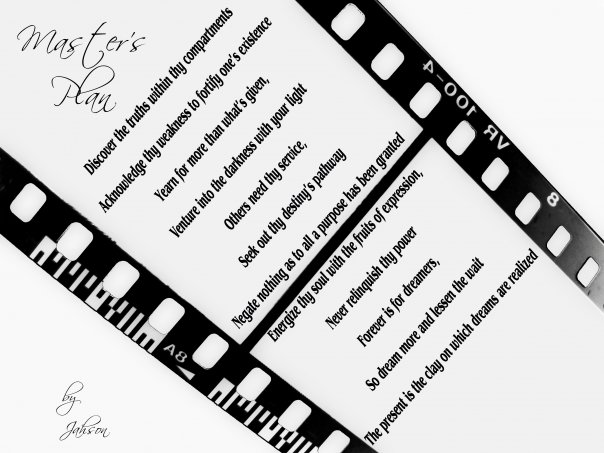 Master's
Plan
Discover the truths within thy compartments
Acknowledge thy weakness to fortify one's existence
Yearn for more than what's given,
Venture into the darkness with your light
Others need thy service,
Seek out thy destiny's pathway
Negate nothing as to all a purpose has been granted
Energize thy soul with the fruits of expression,
Never relinquish thy power
Forever is for dreamers,
So dream more and lessen the wait
The present is the clay on which dreams are realized
VR 100-4
8
8A
by
Jahson